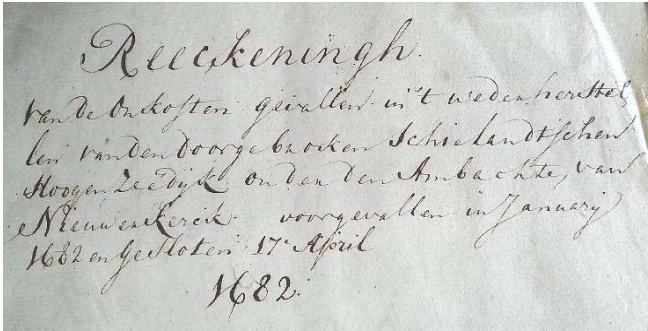 Reeckeningh.
van de onkosten gevallen in't weder herstel,
len van den doorgebroocken Schielandtschen
Hoogen Zeedijk onder den Ambachte, van
Nieuwerkerck voorgevallen in January
1682 en gesloten 17e April
1682.